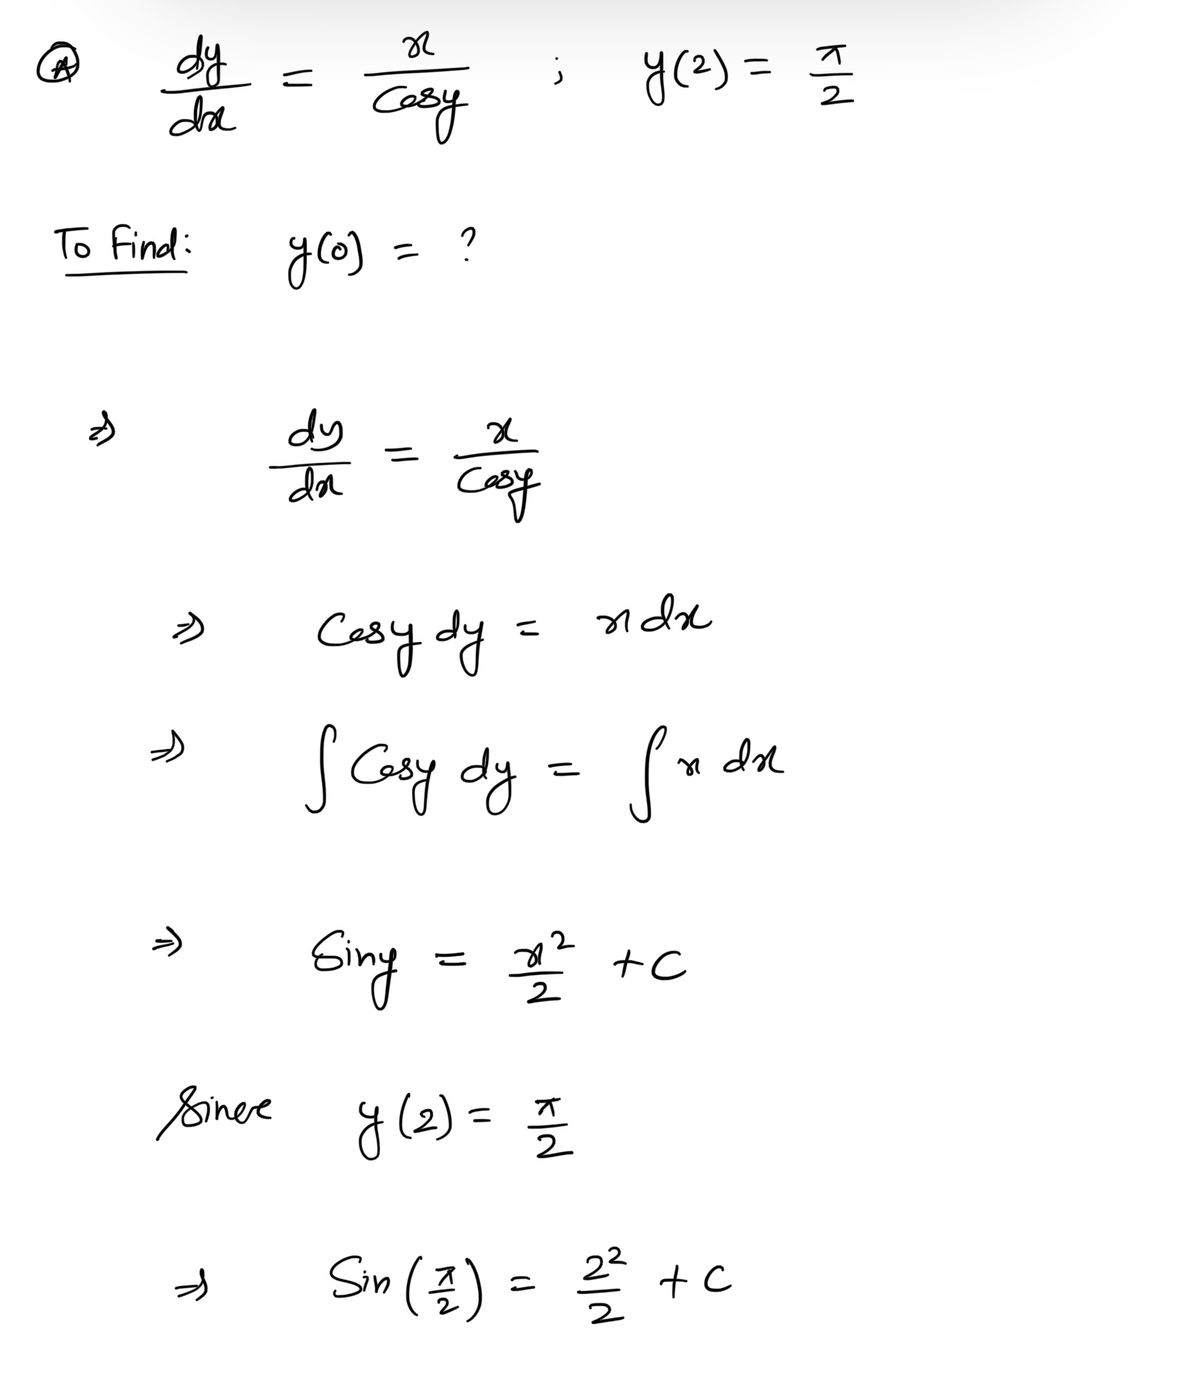 Ⓐ dy/dx = x/Cosy ; y(2) = π/2
To Find: y(0) = ?
⇒ dy/dx = x/Cosy
⇒ Cosy dy = x dx
⇒ ∫ Cosy dy = ∫ x dx
⇒ Siny = x²/2 + C
Since y(2) = π/2
⇒ Sin(π/2) = 2²/2 + C